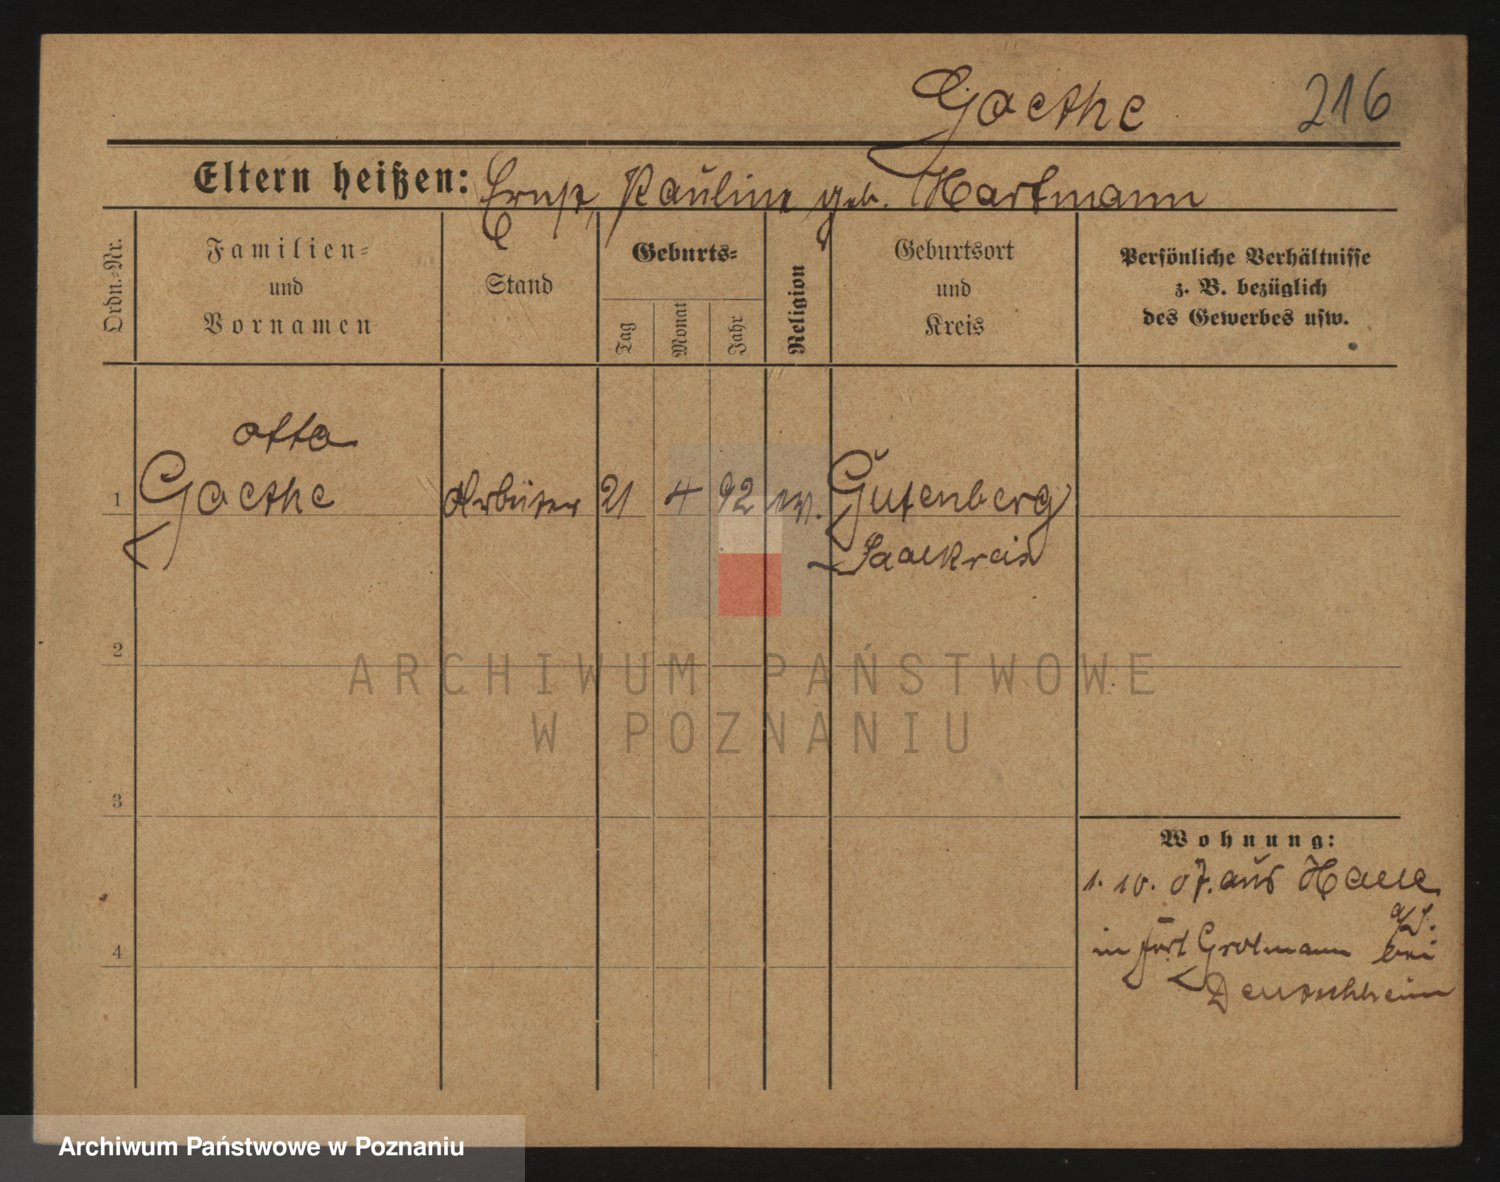 Goethe 216
Eltern heißen: Ernst, Pauline geb. Hartmann
Ordn.-Nr.
Familien-
und
Vornamen
Stand
Geburts-
Tag
Monat
Jahr
Religion
Geburtsort
und
Kreis
Persönliche Verhältnisse
z. B. bezüglich
des Gewerbes usw.
Otto
1 Goethe Arbeiter 21 4 92 ev. Gutenberg
Saalkreis
2
3
4
Wohnung:
1. 10. 07. aus Halle
a/S.
in Fort Grolmann bei
ARCHIWUM PAŃSTWOWE
W POZNANIU
Archiwum Państwowe w Poznaniu